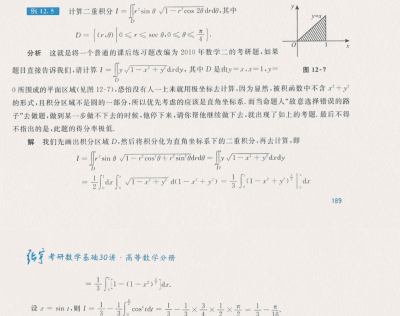 例 12.5 计算二重积分 I = ∬_D r² sin θ √(1 − r² cos 2θ) drdθ, 其中
D = {(r,θ) | 0 ≤ r ≤ sec θ, 0 ≤ θ ≤ π/4}.
y
y=x
O
1
x
图 12-7
分析 这就是将一个普通的课后练习题改编为 2010 年数学二的考研题,如果
题目直接告诉我们,请计算 I = ∬_D y √(1 − x² + y²) dxdy, 其中 D 是由 y=x, x=1, y=
0 所围成的平面区域(见图 12-7),恐怕没有人一上来就用极坐标去计算,因为显然,被积函数中不含 x²+y²
的形式,且积分区域不是圆的一部分,所以优先考虑的应该是直角坐标系.而当命题人“故意选择错误的路
子”去做题,做到某一步做不下去的时候,他停下来,请你替他继续做下去,就出现了如上的考题.最后不得
不指出的是,此题的得分率极低.
解 我们先画出积分区域 D,然后将积分化为直角坐标系下的二重积分,再去计算,即
I = ∬_D r² sin θ √(1 − r² cos² θ + r² sin² θ) drdθ = ∬_D y √(1 − x² + y²) dxdy
= 1/2 ∫₀¹ dx ∫₀ˣ √(1 − x² + y²) d(1 − x² + y²) = 1/3 ∫₀¹ (1 − x² + y²)^(3/2) |₀ˣ dx
189
张宇 考研数学基础30讲·高等数学分册
= 1/3 ∫₀¹ [1 − (1 − x²)^(3/2)] dx.
设 x = sin t, 则 I = 1/3 − 1/3 ∫₀^(π/2) cos⁴ t dt = 1/3 − 1/3 × 3/4 × 1/2 × π/2 = 1/3 − π/16.